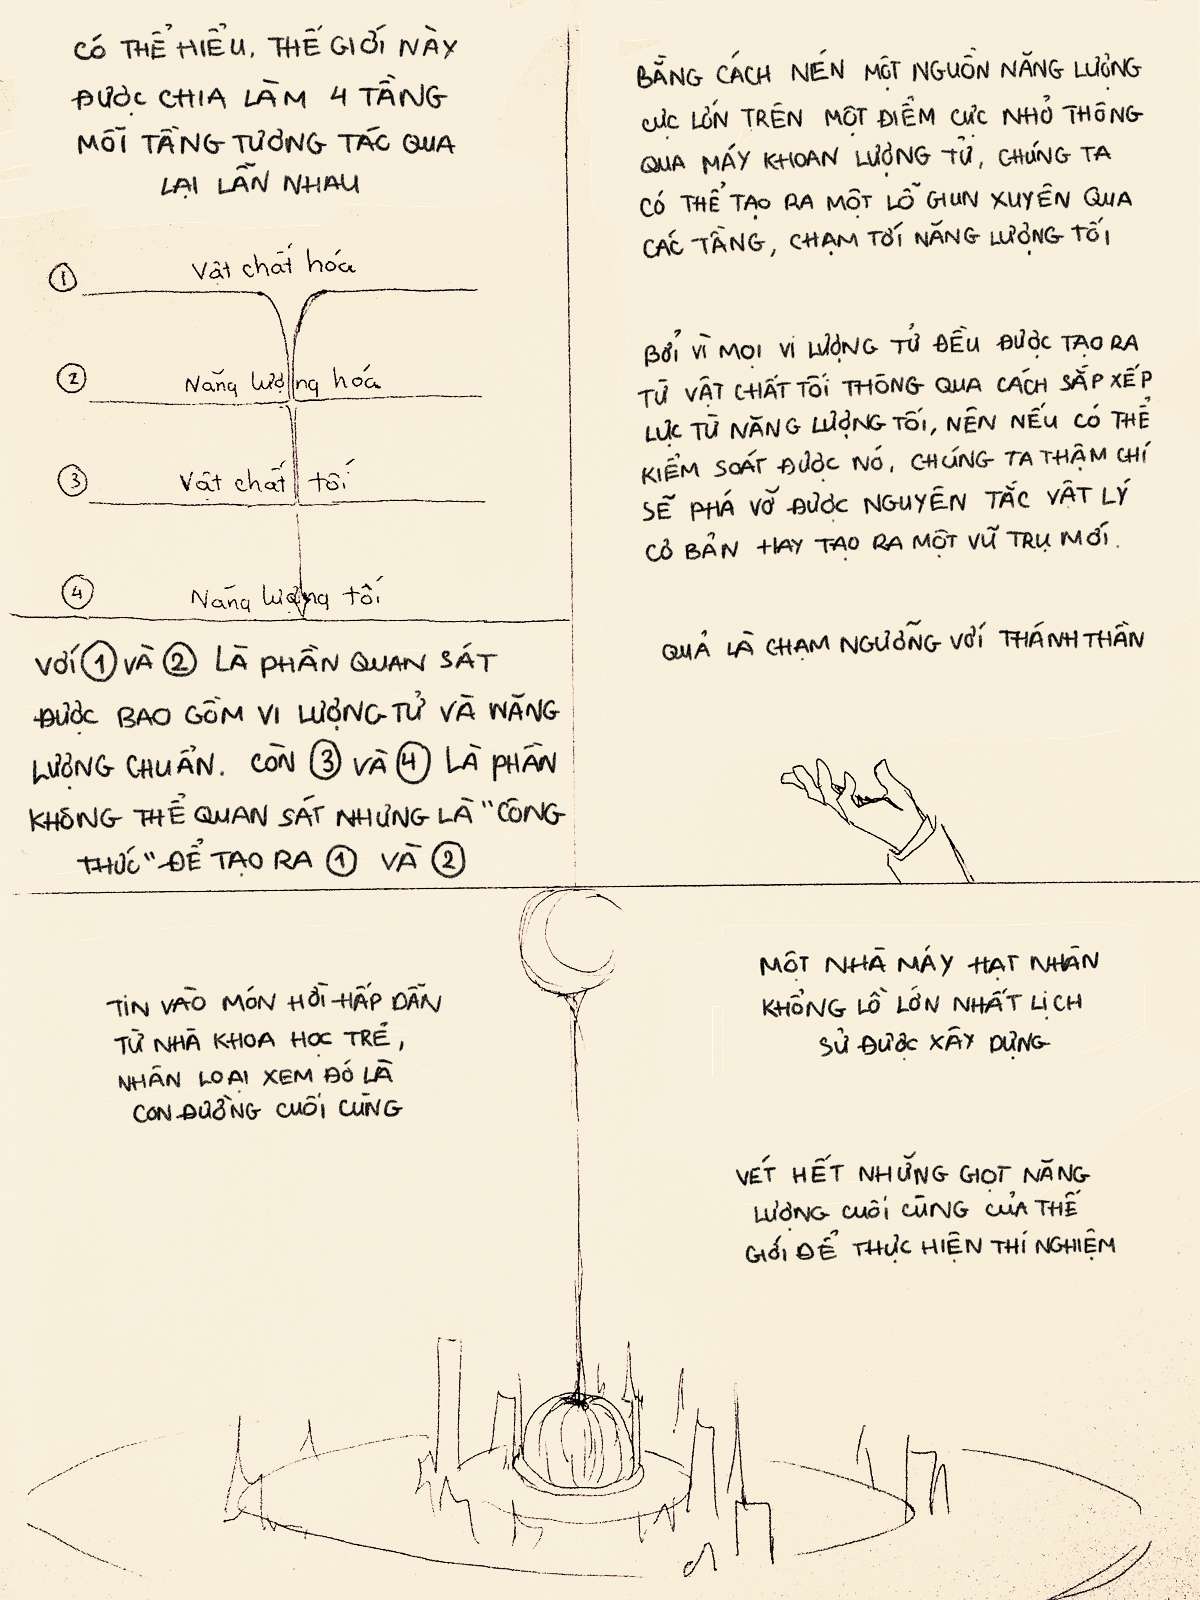 CÓ THỂ HIỂU. THẾ GIỚI NÀY
ĐƯỢC CHIA LÀM 4 TẦNG
MỖI TẦNG TƯƠNG TÁC QUA
LẠI LẪN NHAU
① Vật chất hóa
② Năng lượng hóa
③ Vật chất tối
④ Năng lượng tối
VỚI ① VÀ ② LÀ PHẦN QUAN SÁT
ĐƯỢC BAO GỒM VI LƯỢNG TỬ VÀ NĂNG
LƯỢNG CHUẨN. CÒN ③ VÀ ④ LÀ PHẦN
KHÔNG THỂ QUAN SÁT NHƯNG LÀ "CÔNG
THỨC" ĐỂ TẠO RA ① VÀ ②
BẰNG CÁCH NÉN MỘT NGUỒN NĂNG LƯỢNG
CỰC LỚN TRÊN MỘT ĐIỂM CỰC NHỎ THÔNG
QUA MÁY KHOAN LƯỢNG TỬ, CHÚNG TA
CÓ THỂ TẠO RA MỘT LỖ GIUN XUYÊN QUA
CÁC TẦNG, CHẠM TỚI NĂNG LƯỢNG TỐI
BỞI VÌ MỌI VI LƯỢNG TỬ ĐỀU ĐƯỢC TẠO RA
TỪ VẬT CHẤT TỐI THÔNG QUA CÁCH SẮP XẾP
LỰC TỪ NĂNG LƯỢNG TỐI, NÊN NẾU CÓ THỂ
KIỂM SOÁT ĐƯỢC NÓ, CHÚNG TA THẬM CHÍ
SẼ PHÁ VỠ ĐƯỢC NGUYÊN TẮC VẬT LÝ
CƠ BẢN HAY TẠO RA MỘT VŨ TRỤ MỚI.
QUẢ LÀ CHẠM NGƯỠNG VỚI THÁNH THẦN
TIN VÀO MÓN HỜI HẤP DẪN
TỪ NHÀ KHOA HỌC TRẺ,
NHÂN LOẠI XEM ĐÓ LÀ
CON ĐƯỜNG CUỐI CÙNG
MỘT NHÀ MÁY HẠT NHÂN
KHỔNG LỒ LỚN NHẤT LỊCH
SỬ ĐƯỢC XÂY DỰNG
VÉT HẾT NHỮNG GIỌT NĂNG
LƯỢNG CUỐI CÙNG CỦA THẾ
GIỚI ĐỂ THỰC HIỆN THÍ NGHIỆM